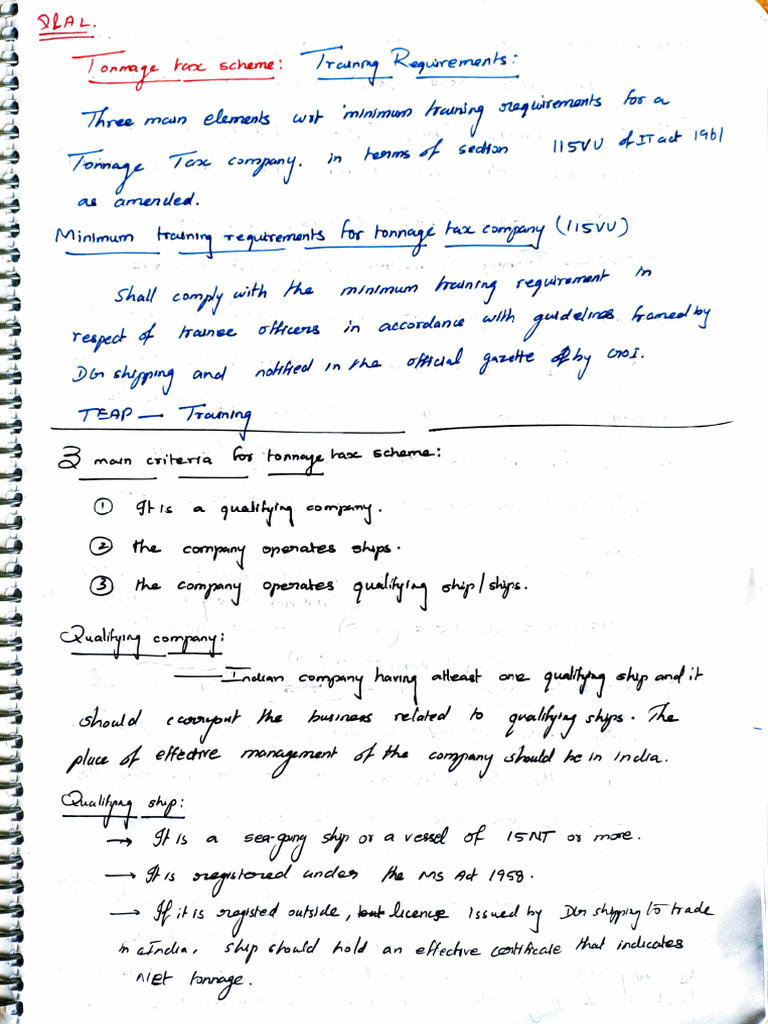 Tonnage tax scheme: Training Requirements:
Three main elements wrt minimum training requirements for a
Tonnage Tax company. in terms of section 115VU of IT act 1961
as amended.
Minimum training requirements for tonnage tax company (115VU)
Shall comply with the minimum training requirement in
respect of trainee officers in accordance with guidelines framed by
DG shipping and notified in the official gazette by GOI.
TEAP — Training
3 main criteria for tonnage tax scheme:
① It is a qualifying company.
② the company operates ships.
③ the company operates qualifying ship/ships.
Qualifying company:
— Indian company having atleast one qualifying ship and it
should carryout the business related to qualifying ships. The
place of effective management of the company should be in india.
Qualifying ship:
→ It is a sea-going ship or a vessel of 15NT or more.
→ It is registered under the MS Act 1958.
→ If it is registed outside, but license issued by DG shipping to trade
in India, ship should hold an effective certificate that indicates
NET tonnage.